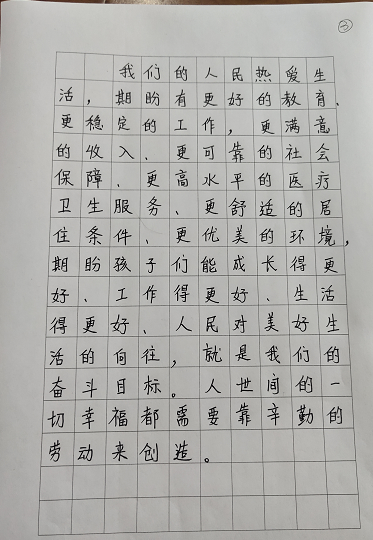 ②
我们的人民热爱生
活，期盼有更好的教育、
更稳定的工作，更满意
的收入、更可靠的社会
保障、更高水平的医疗
卫生服务、更舒适的居
住条件、更优美的环境，
期盼孩子们能成长得更
好、工作得更好、生活
得更好、人民对美好生
活的向往，就是我们的
奋斗目标。人世间的一
切幸福都需要靠辛勤的
劳动来创造。